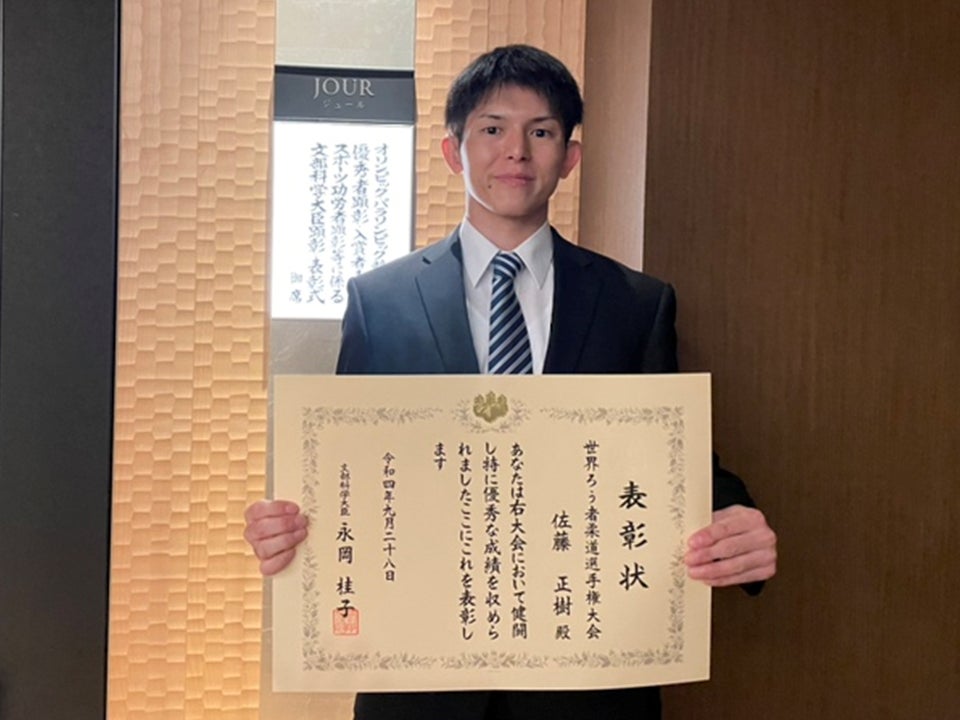 JOUR
ジュール
オリンピックパラリンピック
優秀者顕彰 入賞者
スポーツ功労者顕彰等に係る
文部科学大臣顕彰 表彰式
御席
表彰状
世界ろう者柔道選手権大会
佐藤 正樹 殿
あなたは右大会において健闘
し特に優秀な成績を収めら
れましたここにこれを表彰し
ます
令和四年九月二十八日
文部科学大臣 永岡 桂子